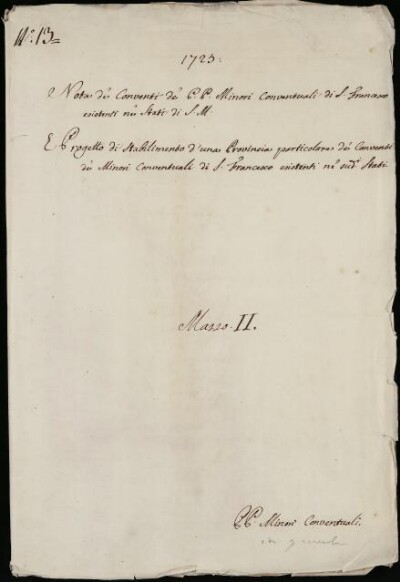 N.° 13=
1723:
Nota de Conventi de P. P. Minori Conventuali di S. Francesco
esistenti ne Stati di S. M.
E Progetto di Stabilimento d'una Provincia particolare de Conventi
de Minori Conventuali di S. Francesco esistenti ne sud.ⁱ Stati
Mazzo II.
P. P. Minori Conventuali.
in generale